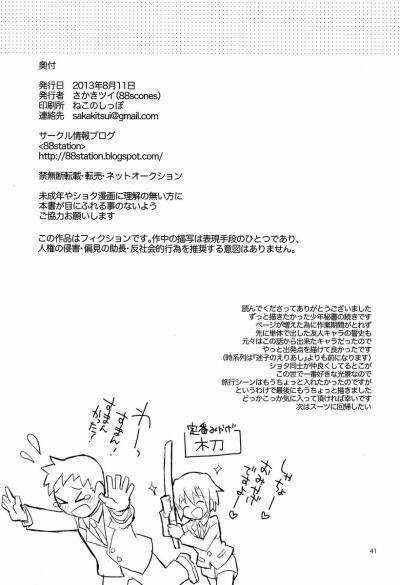 奥付
発行日　2013年8月11日
発行者　さかきツイ(88scones)
印刷所　ねこのしっぽ
連絡先　sakakitsui@gmail.com
サークル情報ブログ
<88station>
http://88station.blogspot.com/
禁無断転載・転売・ネットオークション
未成年やショタ漫画に理解の無い方に
本書が目にふれる事のないよう
ご協力お願いします
この作品はフィクションです。作中の描写は表現手段のひとつであり、
人権の侵害・偏見の助長・反社会的行為を推奨する意図はありません。
読んでくださってありがとうございました
ずっと描きたかった少年秘書の続きです
ページが増えた為に作業期間がとれず
先に単体で出した友人キャラの誓史も
元々はこの話から出来たキャラだったので
やっと出発点を描けて良かったです
(時系列は「迷子のえりあし」よりも前になります)
ショタ同士が仲良くしてるとこが
この世で一番好きな光景なので
旅行シーンはもうちょっと入れたかったのですが
というわけで最後にもうちょっと描きました
どっかこっか気に入って頂ければ幸いです
次はスーツに回帰したい
定番みやげ
木刀
41